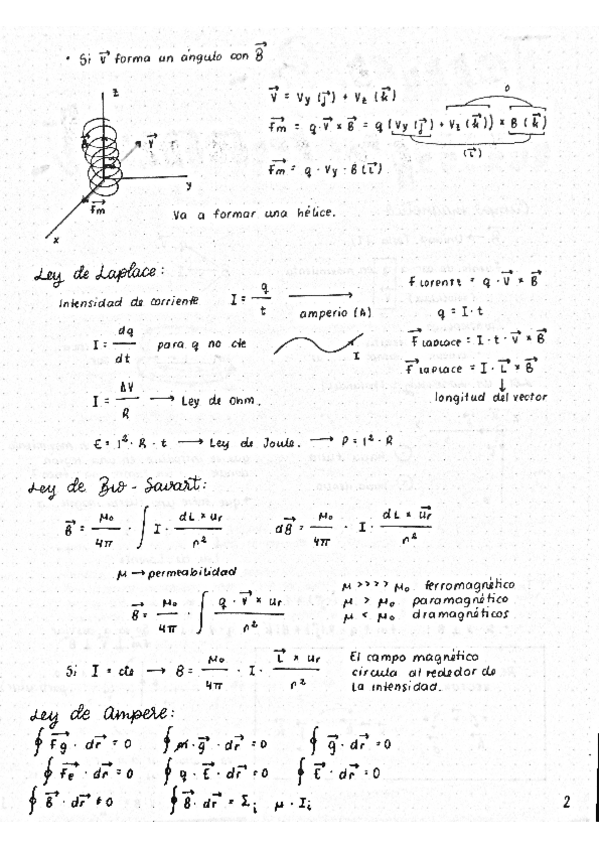 • Si v⃗ forma un ángulo con B⃗
z
v⃗
y
x
f⃗m
B⃗
v⃗ = Vy (j⃗) + Vz (k⃗)
0
f⃗m = q · v⃗ × B⃗ = q (Vy (j⃗) + Vz (k⃗)) × B (k⃗)
(i⃗)
f⃗m = q · Vy · B (i⃗)
Va a formar una hélice.
Ley de Laplace:
Intensidad de corriente I = q/t amperio (A)
I = dq/dt para q no cte
I
I = ΔV/R → Ley de Ohm.
E = I² · R · t → Ley de Joule. → P = I² · R
F Lorentz = q · v⃗ × B⃗
q = I · t
F⃗ Laplace = I · t · v⃗ × B⃗
F⃗ Laplace = I · L⃗ × B⃗
↓
longitud del vector
Ley de Bio - Savart:
B⃗ = μ₀/4π · ∫ I · dL × ur/r² dB⃗ = μ₀/4π · I · dL × u⃗r/r²
μ → permeabilidad
B⃗ = μ₀/4π · ∫ q · v⃗ × ur/r²
μ >>>> μ₀ ferromagnético
μ > μ₀ paramagnético
μ < μ₀ diamagnéticos
Si I = cte → B = μ₀/4π · I · L⃗ × ur/r²
El campo magnético
circula alrededor de
la intensidad.
Ley de Ampere:
∮ F⃗g · dr⃗ = 0 ∮ m · g⃗ · dr⃗ = 0 ∮ g⃗ · dr⃗ = 0
∮ F⃗e · dr⃗ = 0 ∮ q · E⃗ · dr⃗ = 0 ∮ E⃗ · dr⃗ = 0
∮ B⃗ · dr⃗ ≠ 0 ∮ B⃗ · dr⃗ = Σᵢ μ · Iᵢ
2